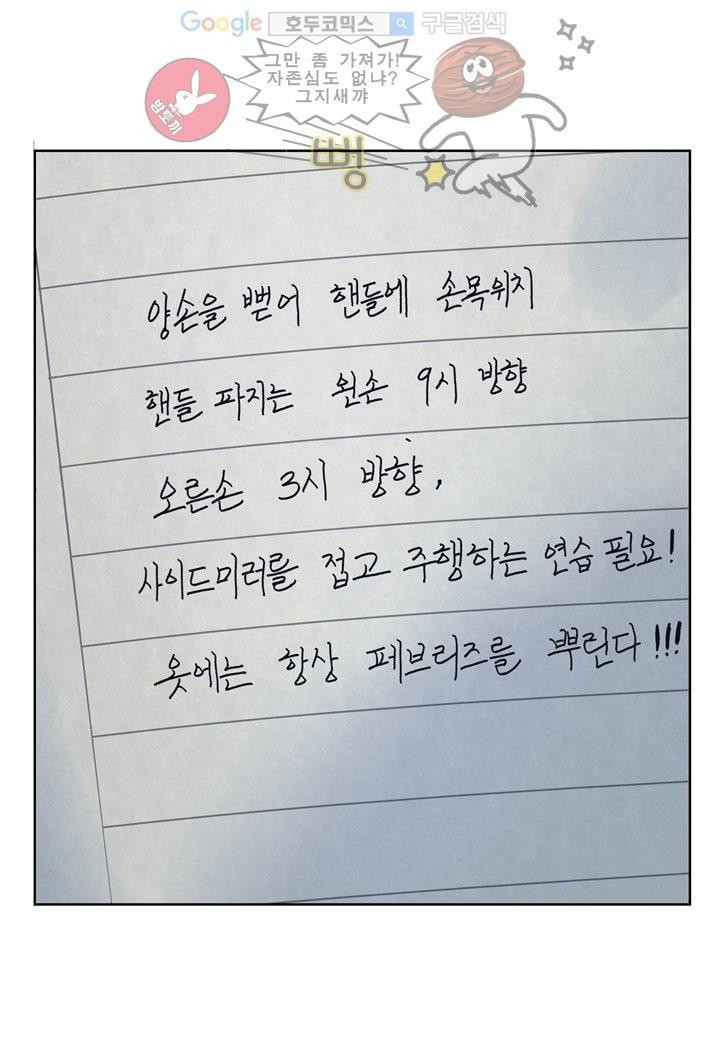 Google 호두코믹스 구글검색
그만 좀 가져가!
자존심도 없냐?
그지새꺄
밤토끼
뻥
양손을 뻗어 핸들에 손목위치
핸들 파지는 왼손 9시 방향
오른손 3시 방향,
사이드미러를 접고 주행하는 연습 필요!
옷에는 항상 페브리즈를 뿌린다!!!